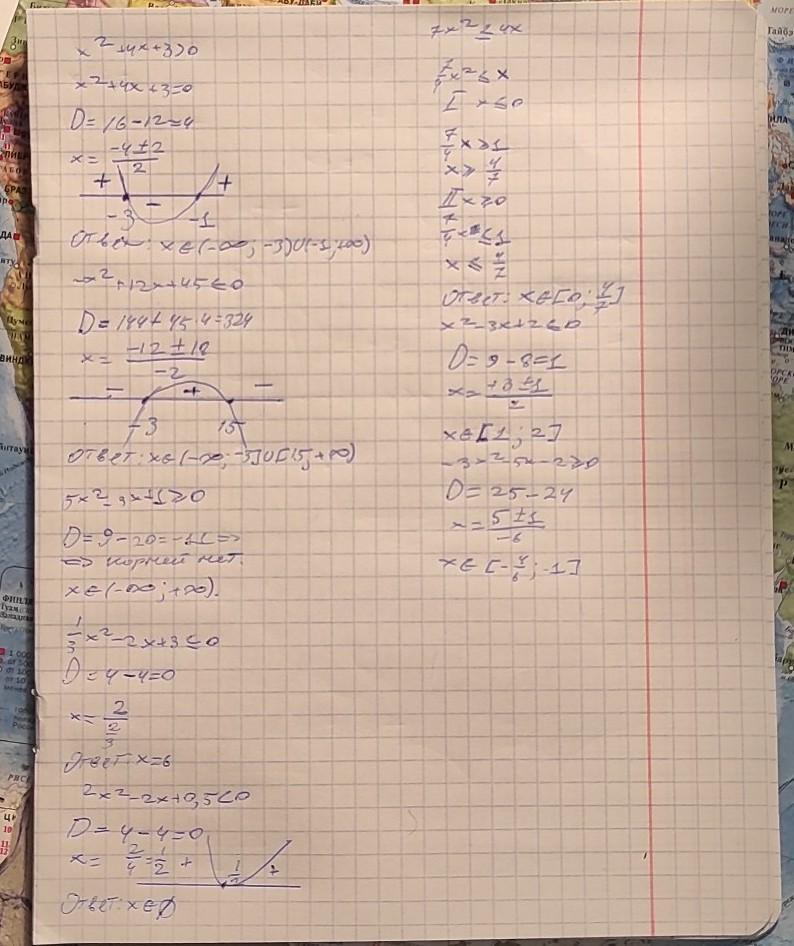 x² + 4x + 3 > 0
x² + 4x + 3 = 0
D = 16 - 12 = 4
x = (-4 ± 2)/2
+ - +
-3 -1
Ответ: x ∈ (-∞; -3) ∪ (-1; +∞)
-x² + 12x + 45 ≤ 0
D = 144 + 45·4 = 324
x = (-12 ± 18)/(-2)
- + -
-3 15
Ответ: x ∈ (-∞; -3] ∪ [15; +∞)
5x² - 3x + 1 ≥ 0
D = 9 - 20 = -11 =>
=> корней нет.
x ∈ (-∞; +∞).
1/3 x² - 2x + 3 ≤ 0
D = 4 - 4 = 0
x = 2/(2/3)
Ответ: x = 6
2x² - 2x + 0,5 < 0
D = 4 - 4 = 0
x = 2/4 = 1/2
+ 1/2 +
Ответ: x ∈ ∅
7x² ≤ 4x
7/4 x² ≤ x
I x ≤ 0
7/4 x ≥ 1
x ≥ 4/7
II x ≥ 0
7/4 x ≤ 1
x ≤ 4/7
Ответ: x ∈ [0; 4/7]
x² - 3x + 2 ≤ 0
D = 9 - 8 = 1
x = (+3 ± 1)/2
x ∈ [1; 2]
-3x² - 5x - 2 ≥ 0
D = 25 - 24
x = (5 ± 1)/(-6)
x ∈ [-4/6; -1]